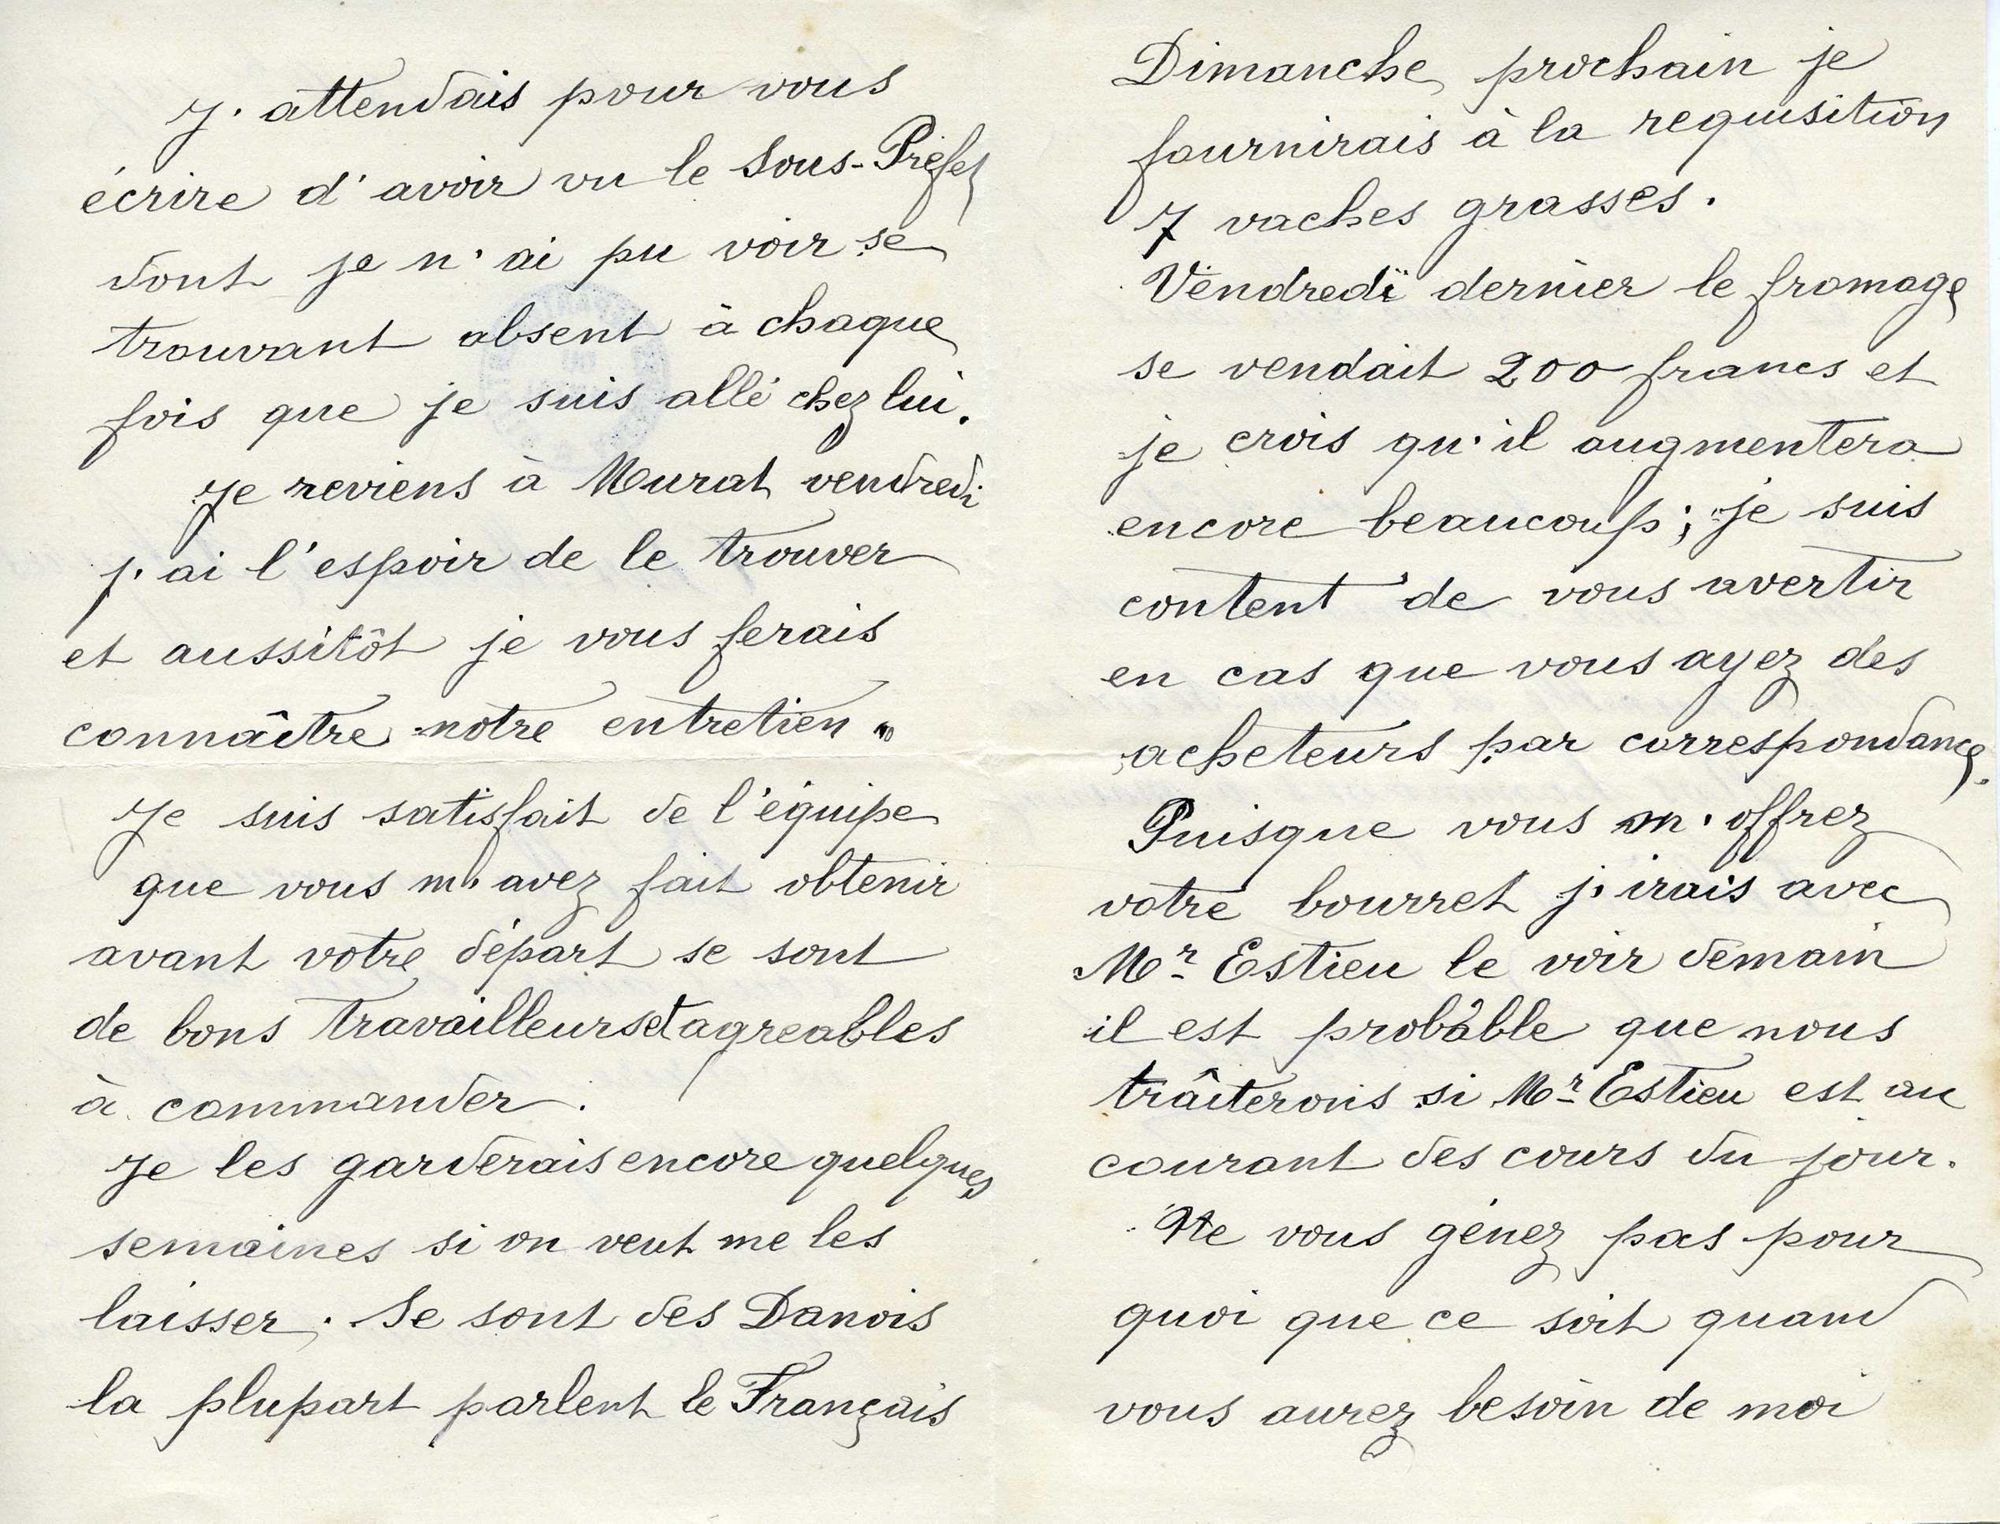 J'attendais pour vous
écrire d'avoir vu le Sous-Préfet
dont je n'ai pu voir se
trouvant absent à chaque
fois que je suis allé chez lui.
Je reviens à Murat vendredi
j'ai l'espoir de le trouver
et aussitôt je vous ferais
connaître notre entretien.
Je suis satisfait de l'équipe
que vous m'avez fait obtenir
avant votre départ se sont
de bons travailleurs et agreables
à commander.
Je les garderais encore quelques
semaines si on veut me les
laisser. Se sont des Danois
la plupart parlent le Français
Dimanche prochain je
fournirais à la requisition
7 vaches grasses.
Vendredi dernier le fromage
se vendait 200 francs et
je crois qu'il augmentera
encore beaucoup; je suis
content de vous avertir
en cas que vous ayez des
acheteurs par correspondance.
Puisque vous m'offrez
votre bourret j'irais avec
Mr Estieu le voir demain
il est probâble que nous
traîterons si Mr Estieu est au
courant des cours du jour.
Ne vous génez pas pour
quoi que ce soit quand
vous aurez besoin de moi